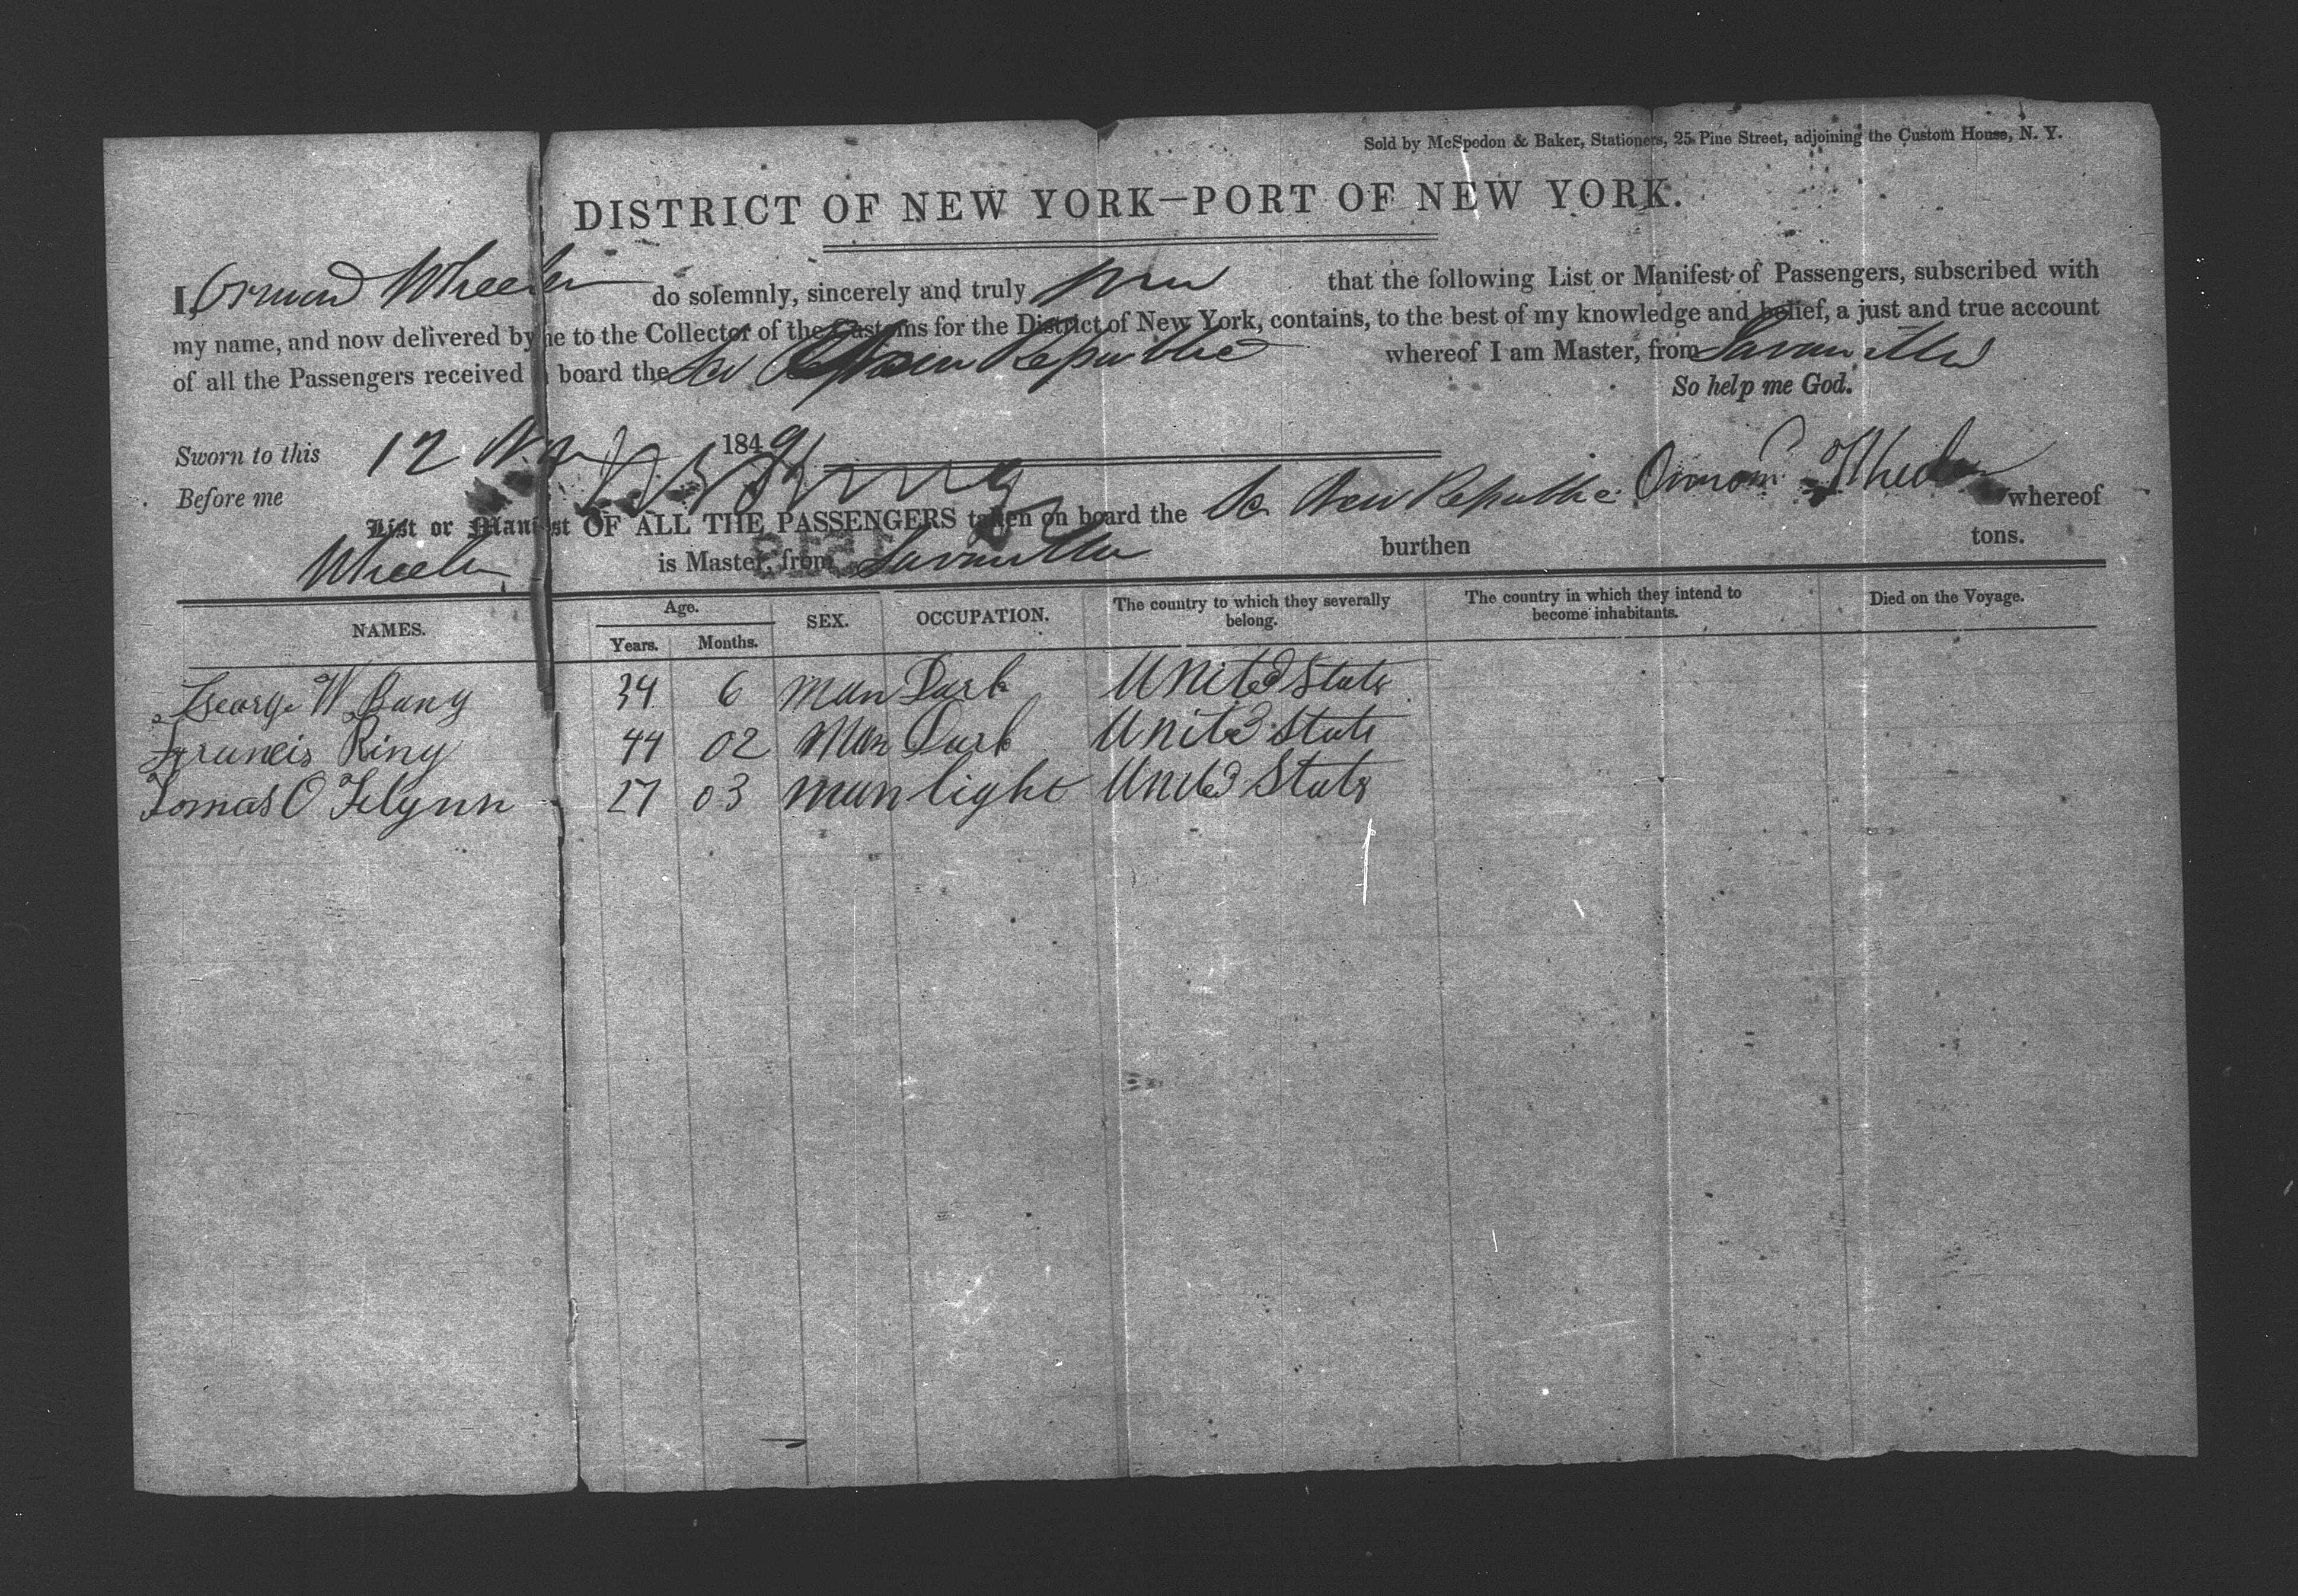 Sold by McSpedon & Baker, Stationers, 25 Pine Street, adjoining the Custom House, N. Y.
DISTRICT OF NEW YORK—PORT OF NEW YORK.
I, Wheeler do solemnly, sincerely and truly that the following List or Manifest of Passengers, subscribed with
my name, and now delivered by me to the Collector of the Customs for the District of New York, contains, to the best of my knowledge and belief, a just and true account
of all the Passengers received board the New Republic whereof I am Master, from Savanilla
So help me God.
Sworn to this 12 1849
Before me
Wheeler
List or Manifest OF ALL THE PASSENGERS taken on board the Sc New Republic whereof
Wheeler is Master, from Savanilla burthen tons.
NAMES. Age. Years. Months. SEX. OCCUPATION. The country to which they severally belong. The country in which they intend to become inhabitants. Died on the Voyage.
George W Bany 34 6 man Dark United States
Francis Riny 44 02 Man Dark United State
Tomas O Flynn 27 03 man light United States